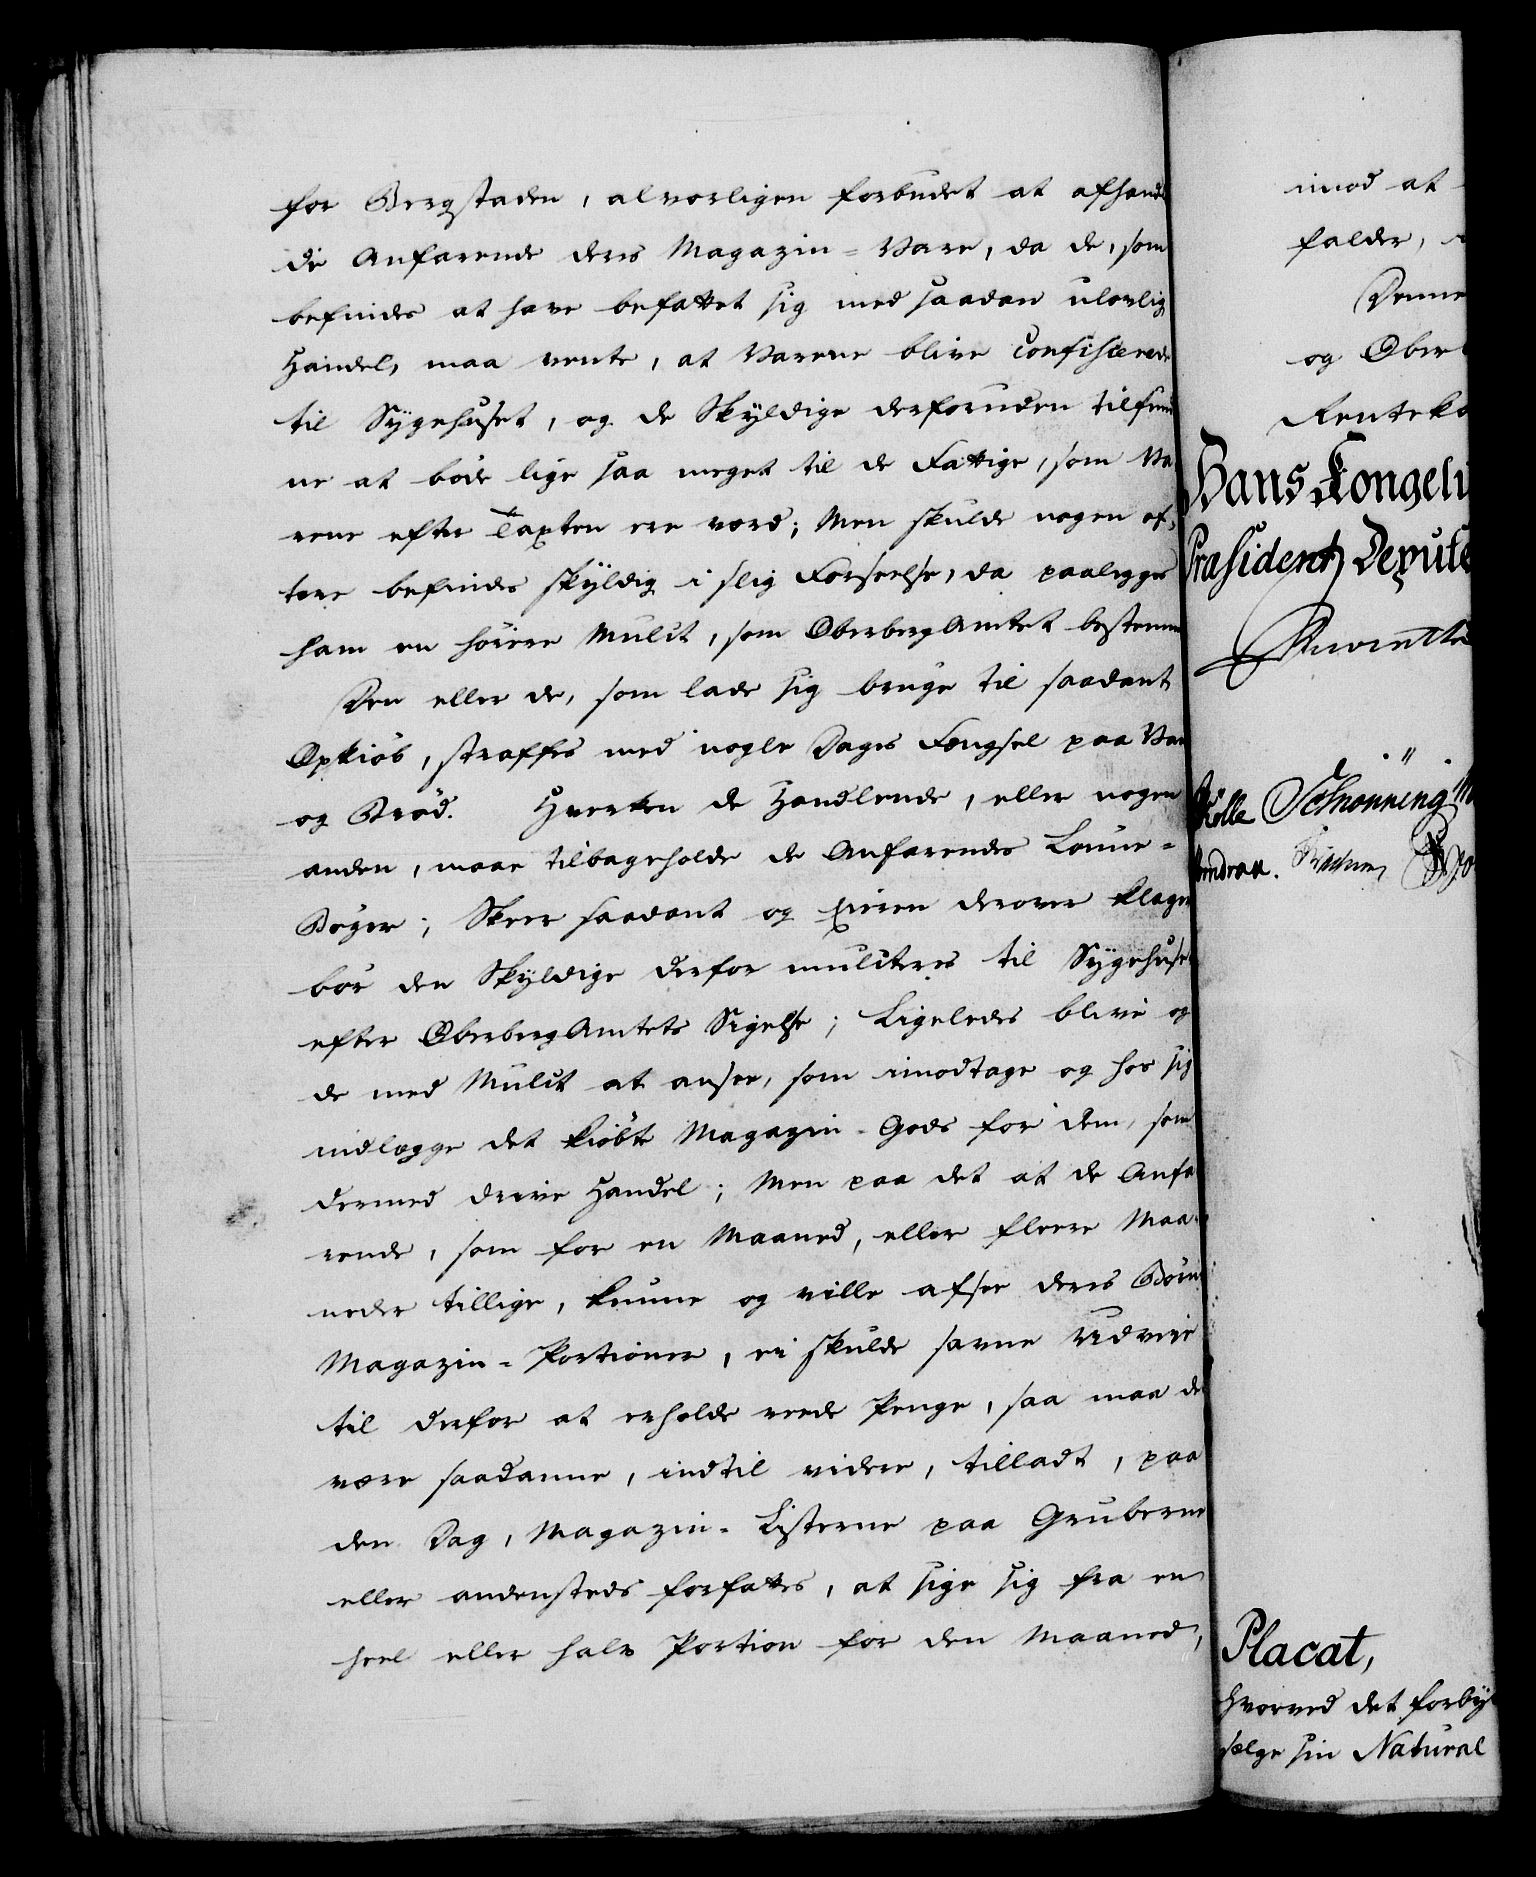 for Bergstaden, alvorligen forbudet at afhand
de Anfarende deres Magazin-Vare, da de, som
befindes at have befattet sig med saadan ulovlig
Handel, maa vente, at Varene blive Confisceerede
til Sygehuset, og de Skyldige desforuden tilfin
ne at bøde lige saa meget til de Fattige, som Va
rene efter Taxten ere værd; Men skulde nogen of,
tere befindes skyldig i slig Forseelse, da paalegges
ham en høiere Mulct, som OberbergAmtet bestemme
Den eller de, som lade sig bruge til saadant
Opkiøb, straffes med nogle Dages Fængsel paa Van
og Brød. Hverken de Handlende, eller nogen
anden, maae tilbageholde de Anfarendes Lønne-
Bøger; Skeer saadant og Eieren derover klager
bør den Skyldige derfor mulcteres til Sygehuset
efter OberbergAmtets Sigelse; Ligeledes blive og
de med Mulct at ansee, som imodtage og hos sig
indlægge det kiøbte Magazin-Gods for dem, som
dermed drive Handel; Men paa det at de Anfa
rende, som for en Maaned, eller fleere Maa-
neder tillige, kunne og ville afsee deres Børne
Magazin-Portioner, ei skulde savne Udveie
til derfor at erholde reede Penge, saa maa de
være saadanne, indtil videre, tilladt, paa
den Dag, Magazin-Listerne paa Gruberne
eller andensteds forfattes, at sige sig fra en
heel eller halv Portion for den Maaned,
imod at
falder,
Denne
og Ober
Renteka
Hans Kongeli
Præsident, Depute
Schønning
Placat,
hvorved det forby
sælge sin Natural